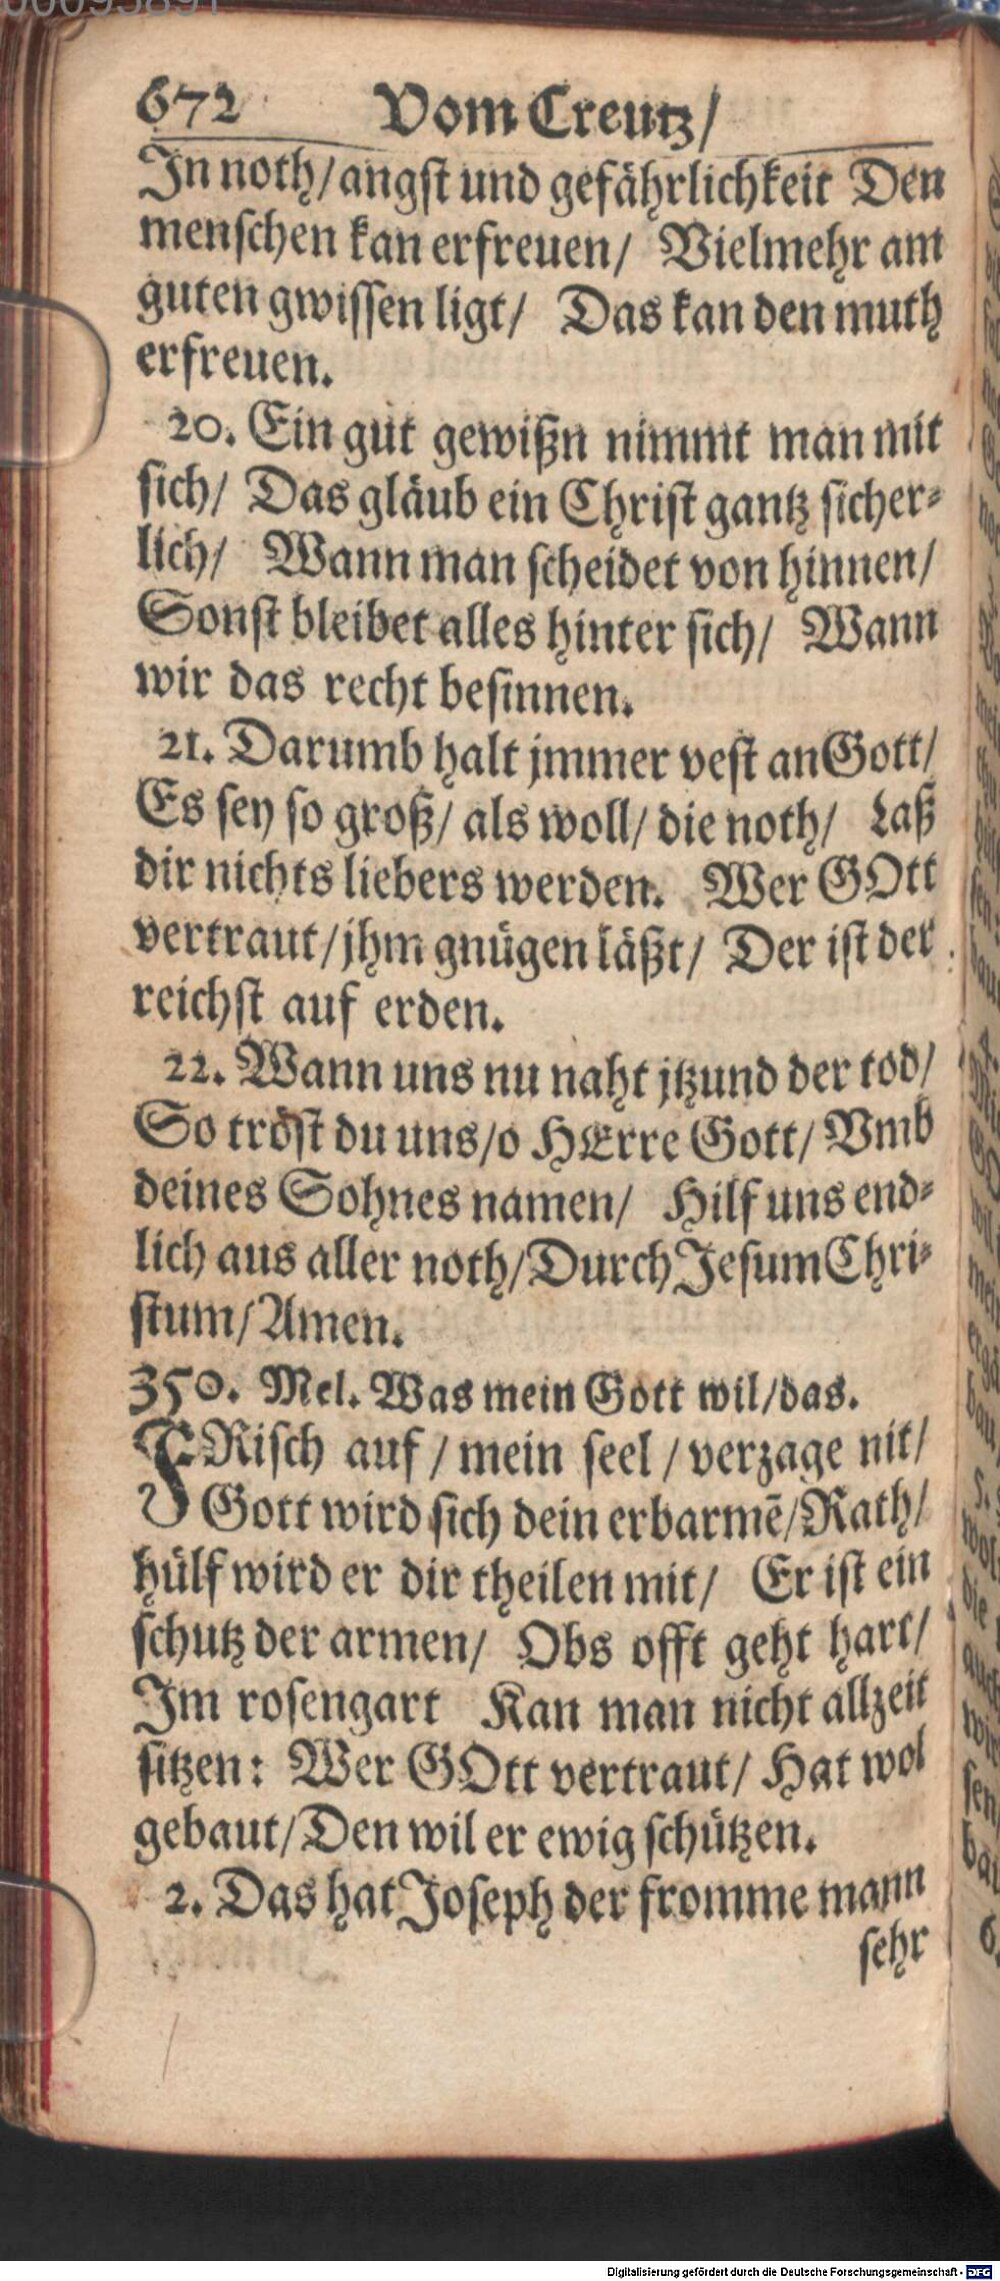 672 Vom Creutz/
In noth/angst und gefährlichkeit Den
menschen kan erfreuen/ Vielmehr am
guten gwissen ligt/ Das kan den muth
erfreuen.
20. Ein gut gewißn nimmt man mit
sich/ Das gläub ein Christ gantz sicher-
lich/ Wann man scheidet von hinnen/
Sonst bleibet alles hinter sich/ Wann
wir das recht besinnen.
21. Darumb halt jmmer vest an Gott/
Es sey so groß/ als woll/ die noth/ Laß
dir nichts liebers werden. Wer GOtt
vertraut/jhm gnügen läßt/ Der ist der
reichst auf erden.
22. Wann uns nu naht jtzund der tod/
So tröst du uns/o HErre Gott/ Vmb
deines Sohnes namen/ Hilf uns end-
lich aus aller noth/Durch Jesum Chri-
stum/Amen.
350. Mel. Was mein Gott wil/das.
FRisch auf/mein seel/verzage nit/
Gott wird sich dein erbarmē/Rath/
hülf wird er dir theilen mit/ Er ist ein
schutz der armen/ Obs offt geht hart/
Im rosengart Kan man nicht allzeit
sitzen: Wer GOtt vertraut/ Hat wol
gebaut/Den wil er ewig schützen.
2. Das hat Joseph der fromme mann
sehr
Digitalisierung gefördert durch die Deutsche Forschungsgemeinschaft - DFG